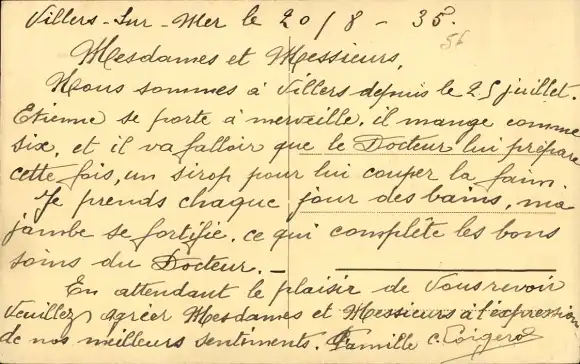 Villers-Sur-Mer le 20/8-35.
56
Mesdames et Messieurs,
Nous sommes à Villers depuis le 25 juillet.
Etienne se porte à merveille, il mange comme
six, et il va falloir que le Docteur lui prépare
cette fois, un sirop pour lui couper la faim.
Je prends chaque jour des bains, ma
jambe se fortifie, ce qui complète les bons
soins du Docteur._
En attendant le plaisir de vous revoir
Veuillez agréer Mesdames et Messieurs à l'expression
de nos meilleurs sentiments. Famille C.